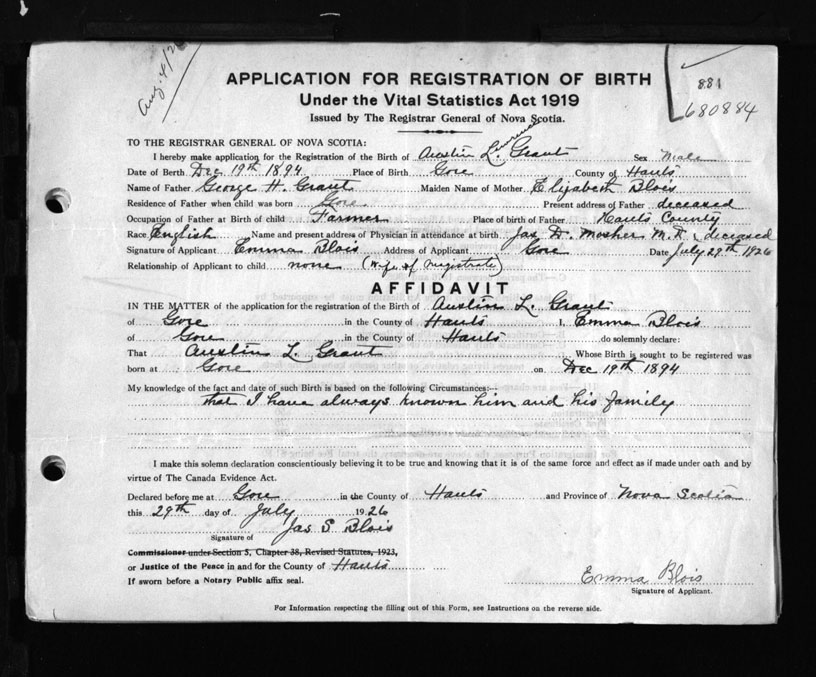 Aug. 4/26
881
680884
APPLICATION FOR REGISTRATION OF BIRTH
Under the Vital Statistics Act 1919
Issued by The Registrar General of Nova Scotia.
TO THE REGISTRAR GENERAL OF NOVA SCOTIA:
I hereby make application for the Registration of the Birth of Austin L. Grant Sex Male
Date of Berth Dec 19th 1894 Place of Birth Gore County of Hants
Name of Father George H. Grant Maiden Name of Mother Elizabeth Blois
Residence of Father when child was born Gore Present address of Father deceased
Occupation of Father at Birth of child Farmer Place of birth of Father Hants County
Race English Name and present address of Physician in attendance at birth Jas D. Mosher M. D., deceased
Signature of Applicant Emma Blois Address of Applicant Gore Date July 29th 1926
Relationship of Applicant to child none (Wife of Magistrate)
AFFIDAVIT
IN THE MATTER of the application for the registration of the Birth of Austin L. Grant
of Gore in the County of Hants I, Emma Blois
of Gore in the County of Hants do solemnly declare:
That Austin L. Grant Whose Birth is sought to be registered was
born at Gore on Dec 19th 1894
My knowledge of the fact and date of such Birth is based on the following Circumstances:--
that I have always known him and his family
I make this solemn declaration conscientiously believing it to be true and knowing that it is of the same force and effect as if made under oath and by
virtue of The Canada Evidence Act.
Declared before me at Gore in the County of Hants and Province of Nova Scotia
this 29th day of July 1926
Jas S Blois
Signature of
Commissioner under Section 5, Chapter 38, Revised Statutes, 1923,
or Justice of the Peace in and for the County of Hants
If sworn before a Notary Public affix seal.
Emma Blois
Signature of Applicant.
For Information respecting the filling out of this Form, see Instructions on the reverse side.